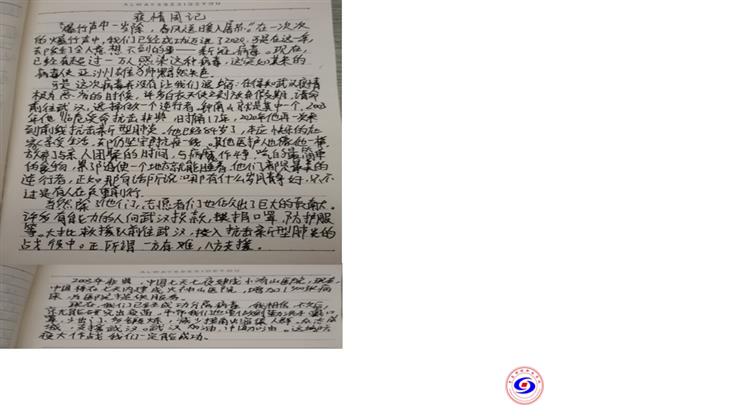 疫情周记
"爆竹声中一岁除,春风送暖入屠苏。"在一次次
的爆竹声中,我们已经成功迈进了2020。可是在这一年,
却发生了令人意想不到的事——新冠病毒。现在,
已经有超过一万人感染这种病毒,这突如其来的
病毒使亚洲
可是这次病毒并没有让我们退缩。在得知武汉疫情
极为严重的时候,许多白衣天使立刻放弃假期,请命
前往武汉,选择做一个逆行者。钟南山就是其中一个。2003
年他临危受命抗击非典,时隔17年,2020年他再一次来
到前线抗击新型肺炎。他已经84岁了,本应快乐的在
家享受生活,却仍坚守在抗疫一线。其他医护人也像他一样,
放弃了与亲人团聚的时间,与病魔作斗争,吃的最简单
的食物,累了随便一个地方就能睡着。他们都是最美的
逆行者,正如那句话所说:哪有什么岁月静好,只不
过是有人在负重前行。
当然除了他们,志愿者们也做出了巨大的贡献。
许多有能力的人向武汉投款,捐赠口罩,防护服
等。大批救援队前往武汉,投入抗击新型肺炎的
占当中。正所谓一方有难,八方支援。
2003年非典,中国七天七夜建成小汤山医院,现在,
中国将在七天内建成火神山医院,增加了1500张病
床,为医院提供服务。
现在,我们已经成功分离病毒,我相信不久后,